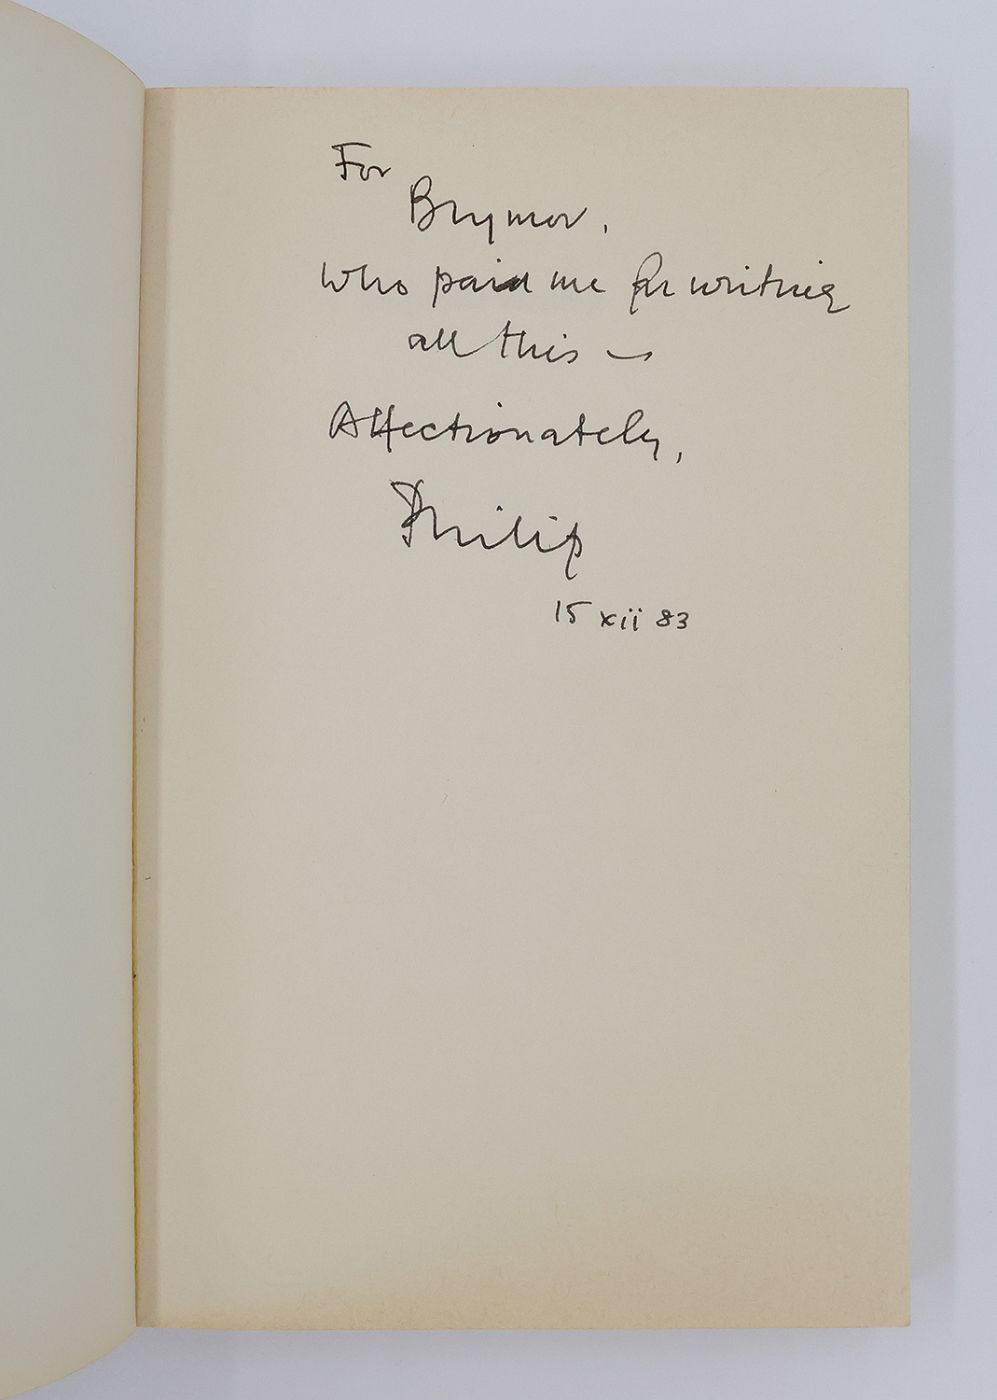 For
Brynmor,
who paid me for writing
all this –
Affectionately,
Philip
15 xii 83